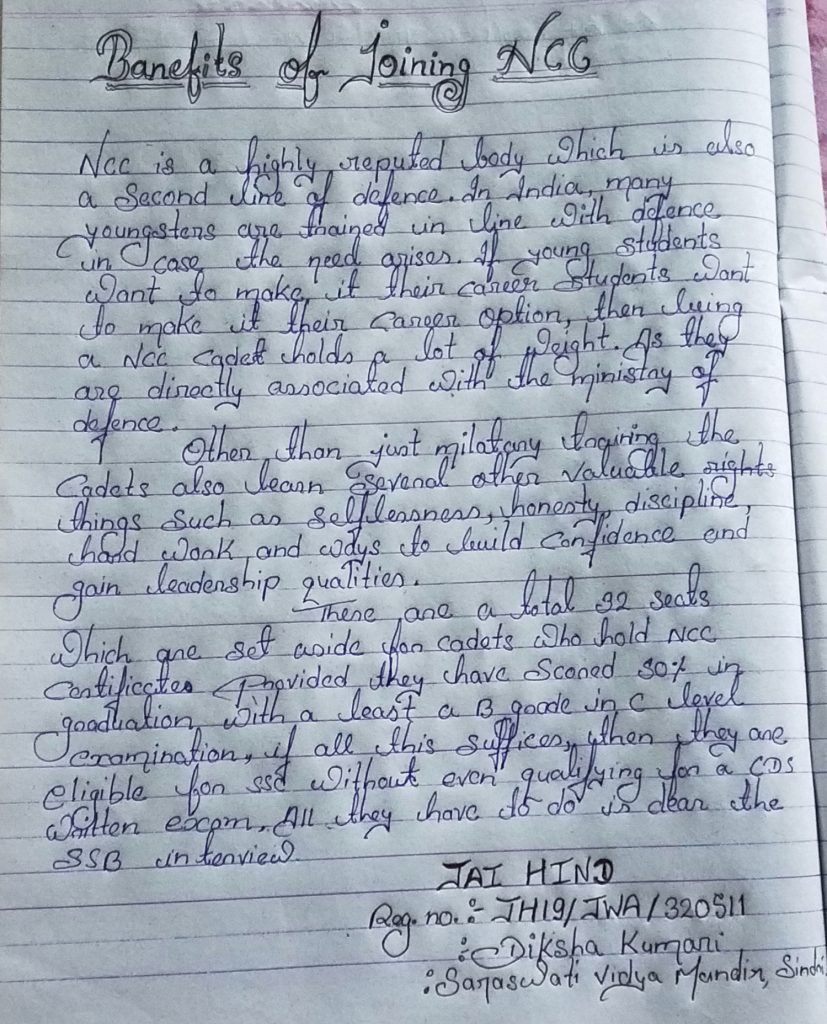 Banefits of Joining NCC
NCC is a highly reputed body which is also
a second line of defence. In India, many
youngsters are trained in line with defence
in case the need arises. If young students
want to make it their career students want
to make it their career option, then being
a NCC cadet holds a lot of weight. As they
are directly associated with the ministry of
defence.
Other than just militany the
cadets also learn several other valuable rights
things such as selflessness, honesty, discipline,
hard work and ways to build confidence and
gain leadership qualities.
There are a total 32 seats
which are set aside for cadets who hold NCC
certificates provided they have scored 50% in
graduation with a least a B grade in C level
examination, if all this suffices, then they are
eligible for SSB without even qualifying for a CDS
written exam. All they have to do is clear the
SSB interview.
JAI HIND
Reg. no.:- JH19/JWA/320511
:- Diksha Kumari
: Saraswati Vidya Mandir, Sindri